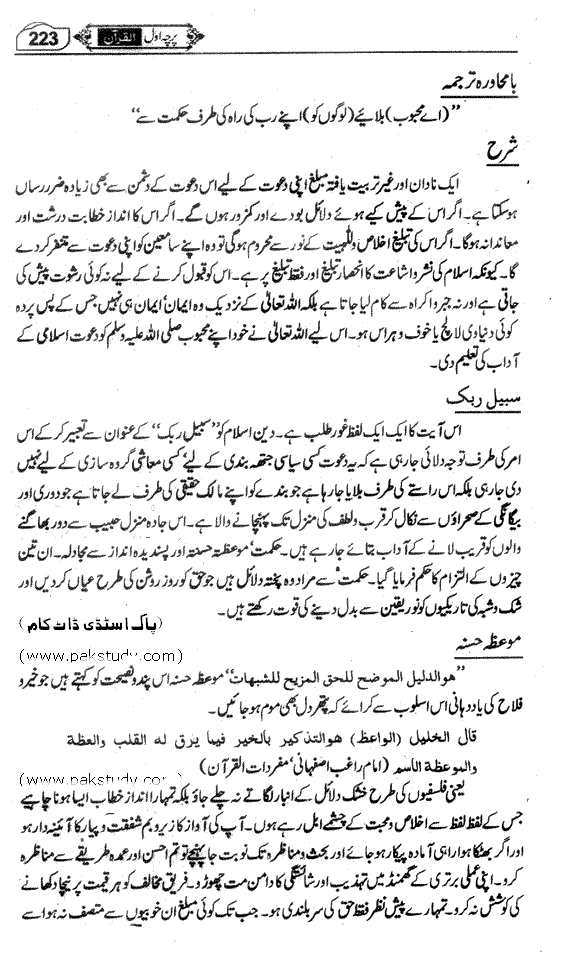 223 پرچہ اول القرآن
بامحاورہ ترجمہ
’’(اے محبوب) بلائیے (لوگوں کو) اپنے رب کی راہ کی طرف حکمت سے‘‘
شرح
ایک نادان اور غیر تربیت یافتہ مبلغ اپنی دعوت کے لیے اس دعوت کے دشمن سے بھی زیادہ ضرر رساں
ہوسکتا ہے۔ اگر اس کے پیش کیے ہوئے دلائل بودے اور کمزور ہوں گے۔ اگر اس کا انداز خطابت درشت اور
معاندانہ ہوگا۔ اگر اس کی تبلیغ اخلاص وللہیت کے نور سے محروم ہوگی تو وہ اپنے سامعین کو اپنی دعوت سے متنفر کردے
گا۔ کیونکہ اسلام کی نشرواشاعت کا انحصار تبلیغ اور فقط تبلیغ پر ہے۔ اس کو قبول کرنے کے لیے نہ کوئی رشوت پیش کی
جاتی ہے اور نہ جبر واکراہ سے کام لیا جاتا ہے بلکہ اللہ تعالیٰ کے نزدیک وہ ایمان‘ ایمان ہی نہیں جس کے پس پردہ
کوئی دنیاوی لالچ یا خوف وہراس ہو۔ اس لیے اللہ تعالیٰ نے خود اپنے محبوب صلی اللہ علیہ وسلم کو دعوت اسلامی کے
آداب کی تعلیم دی۔
سبیل ربک
اس آیت کا ایک ایک لفظ غور طلب ہے۔ دین اسلام کو ’’سبیل ربک‘‘ کے عنوان سے تعبیر کرکے اس
امر کی طرف توجہ دلائی جارہی ہے کہ یہ دعوت کسی سیاسی جتھہ بندی کے لیے‘ کسی معاشی گروہ سازی کے لیے نہیں
دی جارہی بلکہ اس راستے کی طرف بلایا جارہا ہے جو بندے کو اپنے مالک حقیقی کی طرف لے جاتا ہے جو دوری اور
بیگانگی کے صحراؤں سے نکال کر قرب ولطف کی منزل تک پہنچانے والا ہے۔ اس جادہ منزل حبیب سے دور بھاگنے
والوں کو قریب لانے کے آداب بتائے جارہے ہیں۔ حکمت‘ موعظتہ حسنتہ اور پسندیدہ انداز سے مجادلہ۔ ان تین
چیزوں کے التزام کا حکم فرمایا گیا۔ حکمت‘ سے مراد وہ پختہ دلائل ہیں جو حق کو روز روشن کی طرح عیاں کردیں اور
شک وشبہ کی تاریکیوں کو نور یقین سے بدل دینے کی قوت رکھتے ہیں۔ (پاک اسٹڈی ڈاٹ کام)
موعظہ حسنہ (www.pakstudy.com)
’’ھوالدلیل الموضح للحق المزیح للشبھات‘‘ موعظہ حسنہ اس پند ونصیحت کو کہتے ہیں جو خیرو
فلاح کی یاد دہانی اس اسلوب سے کرائے کہ پتھر دل بھی موم ہوجائیں۔
قال الخلیل (الواعظ) ھوالتذکیر بالخیر فیما یرق لہ القلب والعظۃ
والموعظۃ الاسم (امام راغب اصفہانی‘ مفردات القرآن) (www.pakstudy.com)
یعنی فلسفیوں کی طرح خشک دلائل کے انبار لگاتے نہ چلے جاؤ بلکہ تمہارا انداز خطاب ایسا ہونا چاہیے
جس کے لفظ لفظ سے اخلاص ومحبت کے چشمے ابل رہے ہوں۔ آپ کی آواز کا زیروبم شفقت وپیار کا آئینہ دار ہو
اور اگر بھٹکا ہوا راہی آمادہ پیکار ہوجائے اور بحث ومناظرہ تک نوبت جاپہنچے تو تم احسن اور عمدہ طریقے سے مناظرہ
کرو۔ اپنی عملی برتری کے گھمنڈ میں تہذیب اور شائستگی کا دامن مت چھوڑو۔ فریق مخالف کو ہر قیمت پر نیچا دکھانے
کی کوشش نہ کرو۔ تمہارے پیش نظر فقط حق کی سربلندی ہو۔ جب تک کوئی مبلغ ان خوبیوں سے متصف نہ ہو اسے